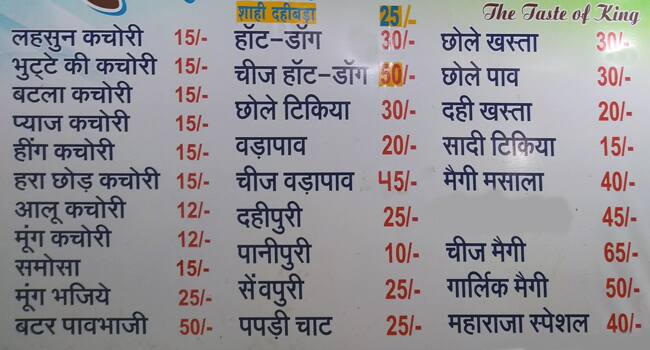 शाही दहीबड़ा 25/-
The Taste of King
लहसुन कचोरी 15/-
भुट्टे की कचोरी 15/-
बटला कचोरी 15/-
प्याज कचोरी 15/-
हींग कचोरी 15/-
हरा छोड़ कचोरी 15/-
आलू कचोरी 12/-
मूंग कचोरी 12/-
समोसा 15/-
मूंग भजिये 25/-
बटर पावभाजी 50/-
हॉट-डॉग 30/-
चीज हॉट-डॉग 50/-
छोले टिकिया 30/-
वड़ापाव 20/-
चीज वड़ापाव 45/-
दहीपुरी 25/-
पानीपुरी 10/-
सेंवपुरी 25/-
पपड़ी चाट 25/-
छोले खस्ता 30/-
छोले पाव 30/-
दही खस्ता 20/-
सादी टिकिया 15/-
मैगी मसाला 40/-
45/-
चीज मैगी 65/-
गार्लिक मैगी 50/-
महाराजा स्पेशल 40/-